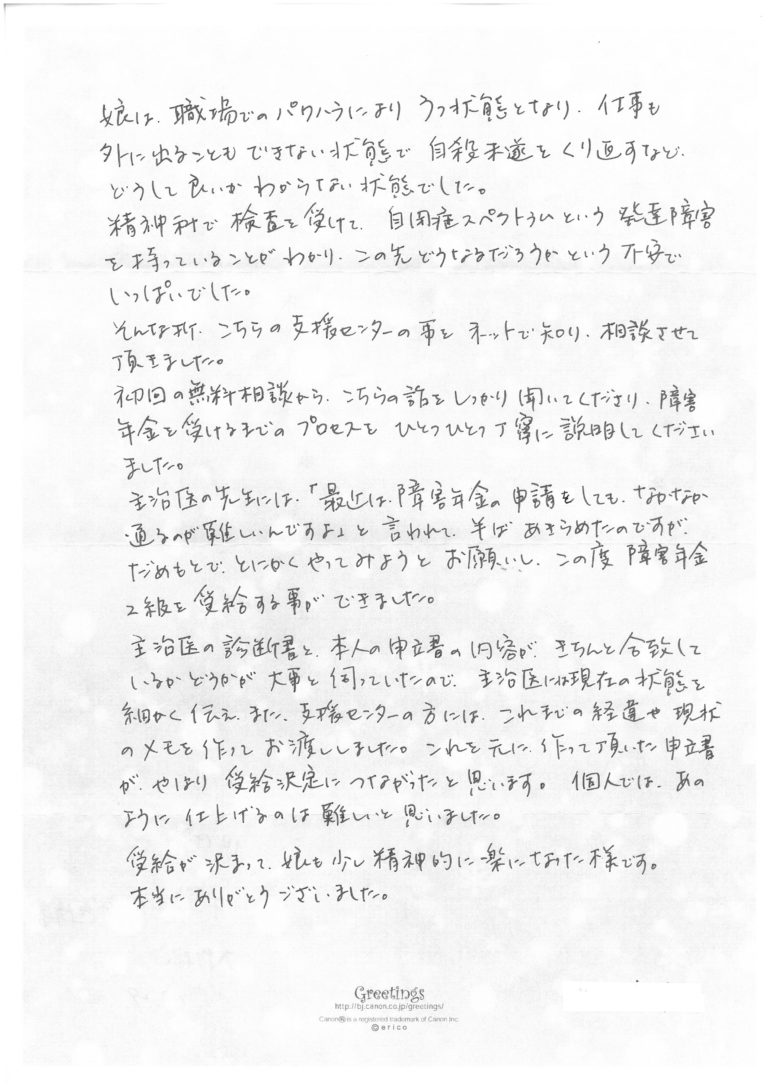 娘は、職場でのパワハラにより うつ状態となり、仕事も
外に出ることも できない状態で 自殺未遂を くり返すなど、
どうして良いか わからない状態でした。
精神科で 検査を受けて、自閉症スペクトラムという 発達障害
を持っていることが わかり、この先どうなるだろうか という 不安で
いっぱいでした。
そんな折、こちらの支援センターの事を ネットで知り、相談させて
頂きました。
初回の無料相談から、こちらの話をしっかり聞いてくださり、障害
年金を受けるまでの プロセスを ひとつひとつ丁寧に説明してください
ました。
主治医の先生には、「最近は、障害年金の申請をしても、なかなか
通るのが難しいんですよ」と言われて、半ば あきらめたのですが、
だめもとで、とにかくやってみようと お願いし、この度 障害年金
2級を受給する事が できました。
主治医の診断書と、本人の申立書の内容が、きちんと合致して
いるかどうかが 大事と伺っていたので、主治医には現在の状態を
細かく伝え、また、支援センターの方には、これまでの経過や現状
のメモを作って お渡ししました。これを元に、作って頂いた申立書
が、やはり 受給決定につながったと思います。 個人では、あの
ように仕上げるのは難しいと思いました。
受給が決まって、娘も少し精神的に楽になった様です。
本当にありがとうございました。
Greetings
http://bj.canon.co.jp/greetings/
Canon is a registered trademark of Canon Inc.
©erico